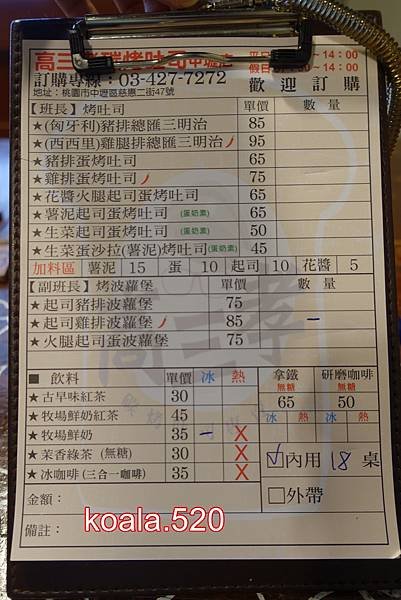 高三 碳烤吐司中壢店
～14：00
假日 ～14：00
訂購專線：03-427-7272 歡迎訂購
地址：桃園市中壢區慈惠二街47號
【班長】烤吐司 單價 數量
★(匈牙利)豬排總匯三明治 85
★(西西里)雞腿排總匯三明治 95
★豬排蛋烤吐司 65
★雞排蛋烤吐司 75
★花醬火腿起司蛋烤吐司 65
★薯泥起司蛋烤吐司 (蛋奶素) 65
★生菜起司蛋烤吐司 (蛋奶素) 50
★生菜蛋沙拉(薯泥)烤吐司(蛋奶素) 45
加料區 薯泥 15 蛋 10 起司 10 花醬 5
【副班長】烤波蘿堡 單價 數量
★起司豬排波蘿堡 75
★起司雞排波蘿堡 85 一
★火腿起司蛋波蘿堡 75
■ 飲料 單價 冰 熱 拿鐵 研磨咖啡
無糖 無糖
★古早味紅茶 30 65 50
★牧場鮮奶紅茶 45 冰 熱 冰 熱
★牧場鮮奶 35 一 X
★茉香綠茶 (無糖) 30 X ☑內用 18 桌
★冰咖啡(三合一咖啡) 35 X
金額： □外帶
備註：
koala.520